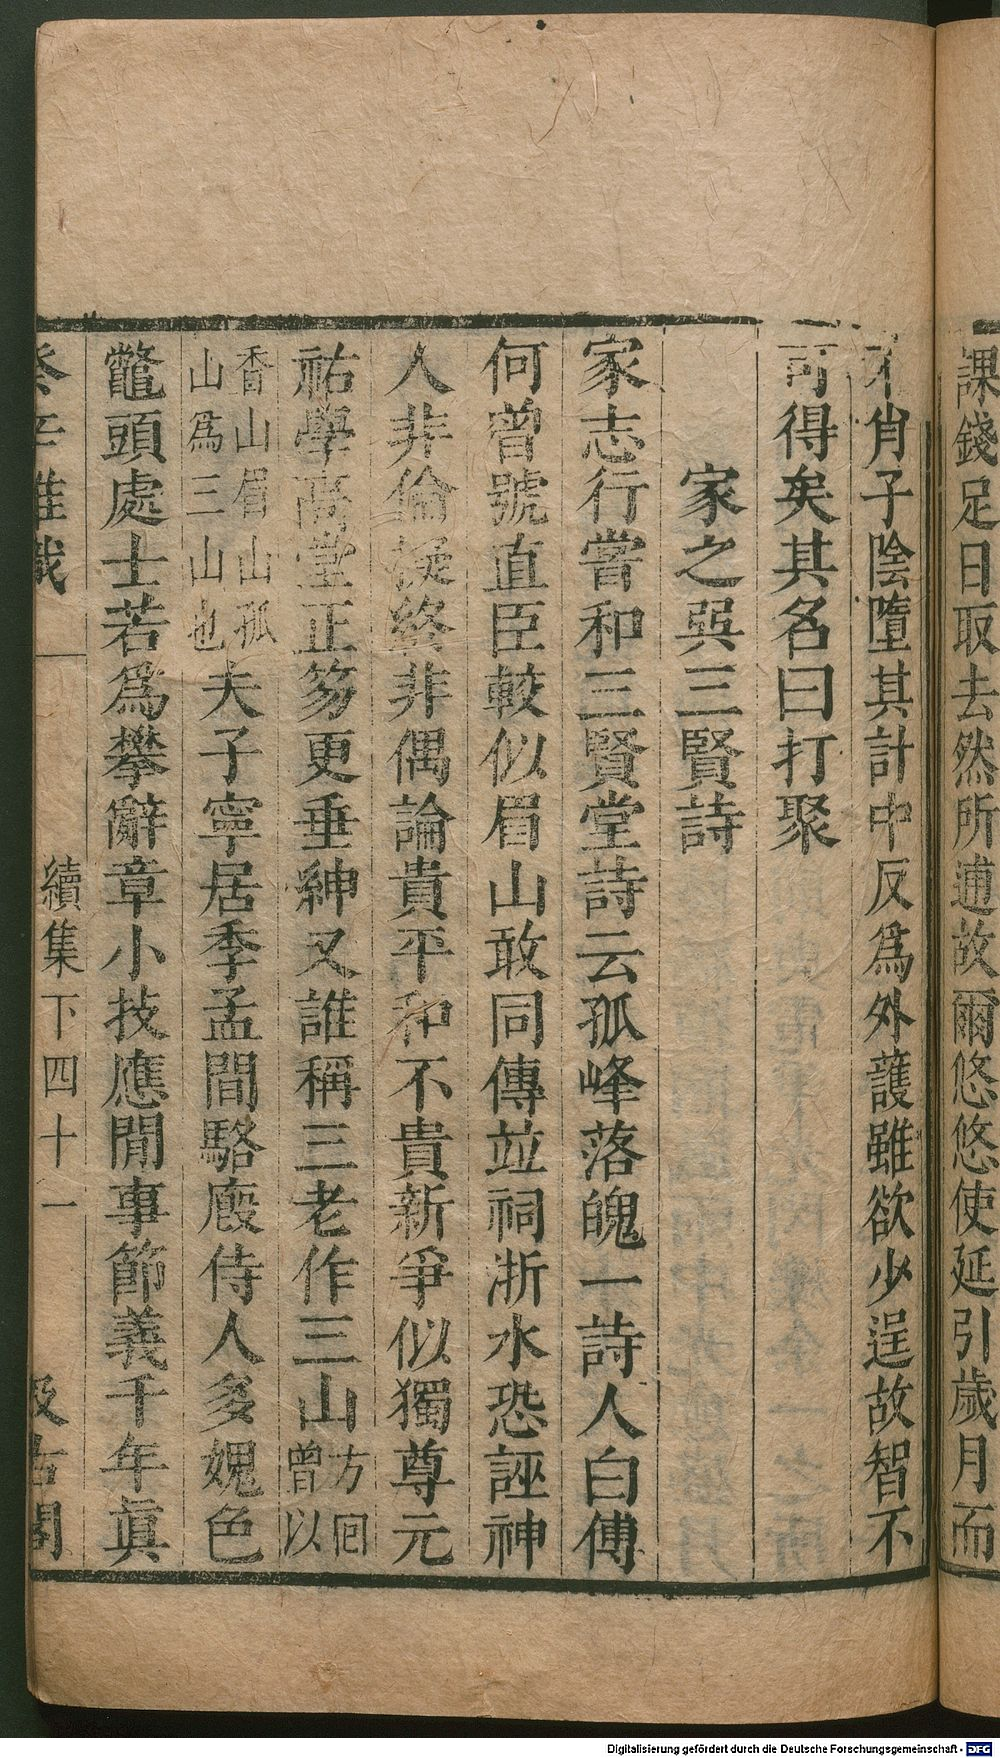 課錢足日取去然所逋故爾悠悠使延引歲月而
不肖子陰墮其計中反爲外護雖欲少逞故智不
可得矣其名曰打聚
家之巽三賢詩
家志行嘗和三賢堂詩云孤峰落魄一詩人白傅
何曾號直臣較似眉山敢同傳並祠浙水恐誣神
人非倫擬終非偶論貴平和不貴新爭似獨尊元
祐學高堂正笏更垂紳又誰稱三老作三山方回曾以
香山眉山孤山爲三山也夫子寧居季孟間駱廄侍人多媿色
鼈頭處士若爲攀辭章小技應閒事節義千年眞
癸辛雜識 續集下四十一 汲古閣
Digitalisierung gefördert durch die Deutsche Forschungsgemeinschaft - DFG